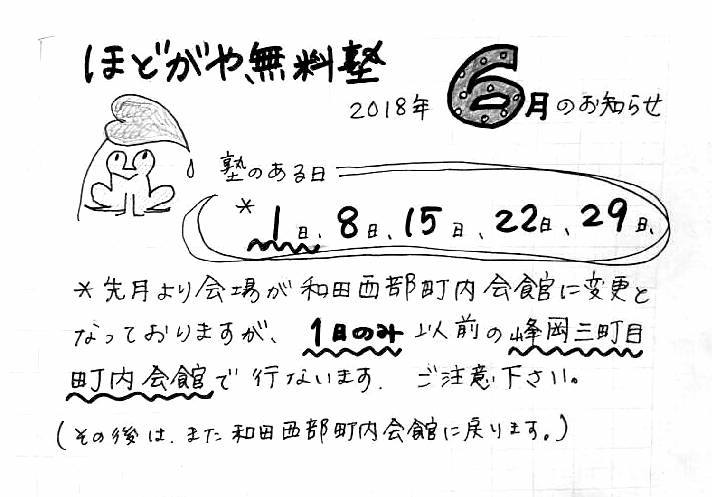 ほどがや無料塾
2018年 6月のお知らせ
塾のある日
* 1日、8日、15日、22日、29日、
*先月より会場が和田西部町内会館に変更と
なっておりますが、1日のみ以前の峰岡三町目
町内会館で行ないます。ご注意下さい。
(その後は、また和田西部町内会館に戻ります。)